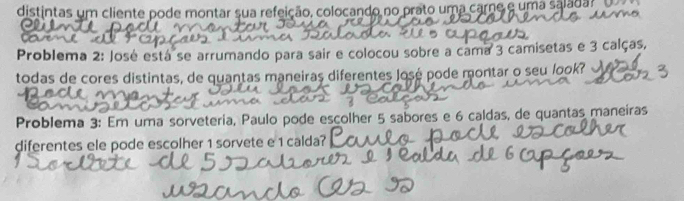 distintas um cliente pode montar sua refeição, colocando no prato uma carne e uma salada?
cliente pode montar sua refeição escolhendo uma
carne e uma salada
Problema 2: José está se arrumando para sair e colocou sobre a cama 3 camisetas e 3 calças,
todas de cores distintas, de quantas maneiras diferentes José pode montar o seu look? José
pode montar seu look escolhendo uma das 3
camisetas uma das 3 calças
Problema 3: Em uma sorveteria, Paulo pode escolher 5 sabores e 6 caldas, de quantas maneiras
diferentes ele pode escolher 1 sorvete e 1 calda? Paulo pode escolher
1 Sorvete de 5 sabores e 1 calda de 6 opções
usando as